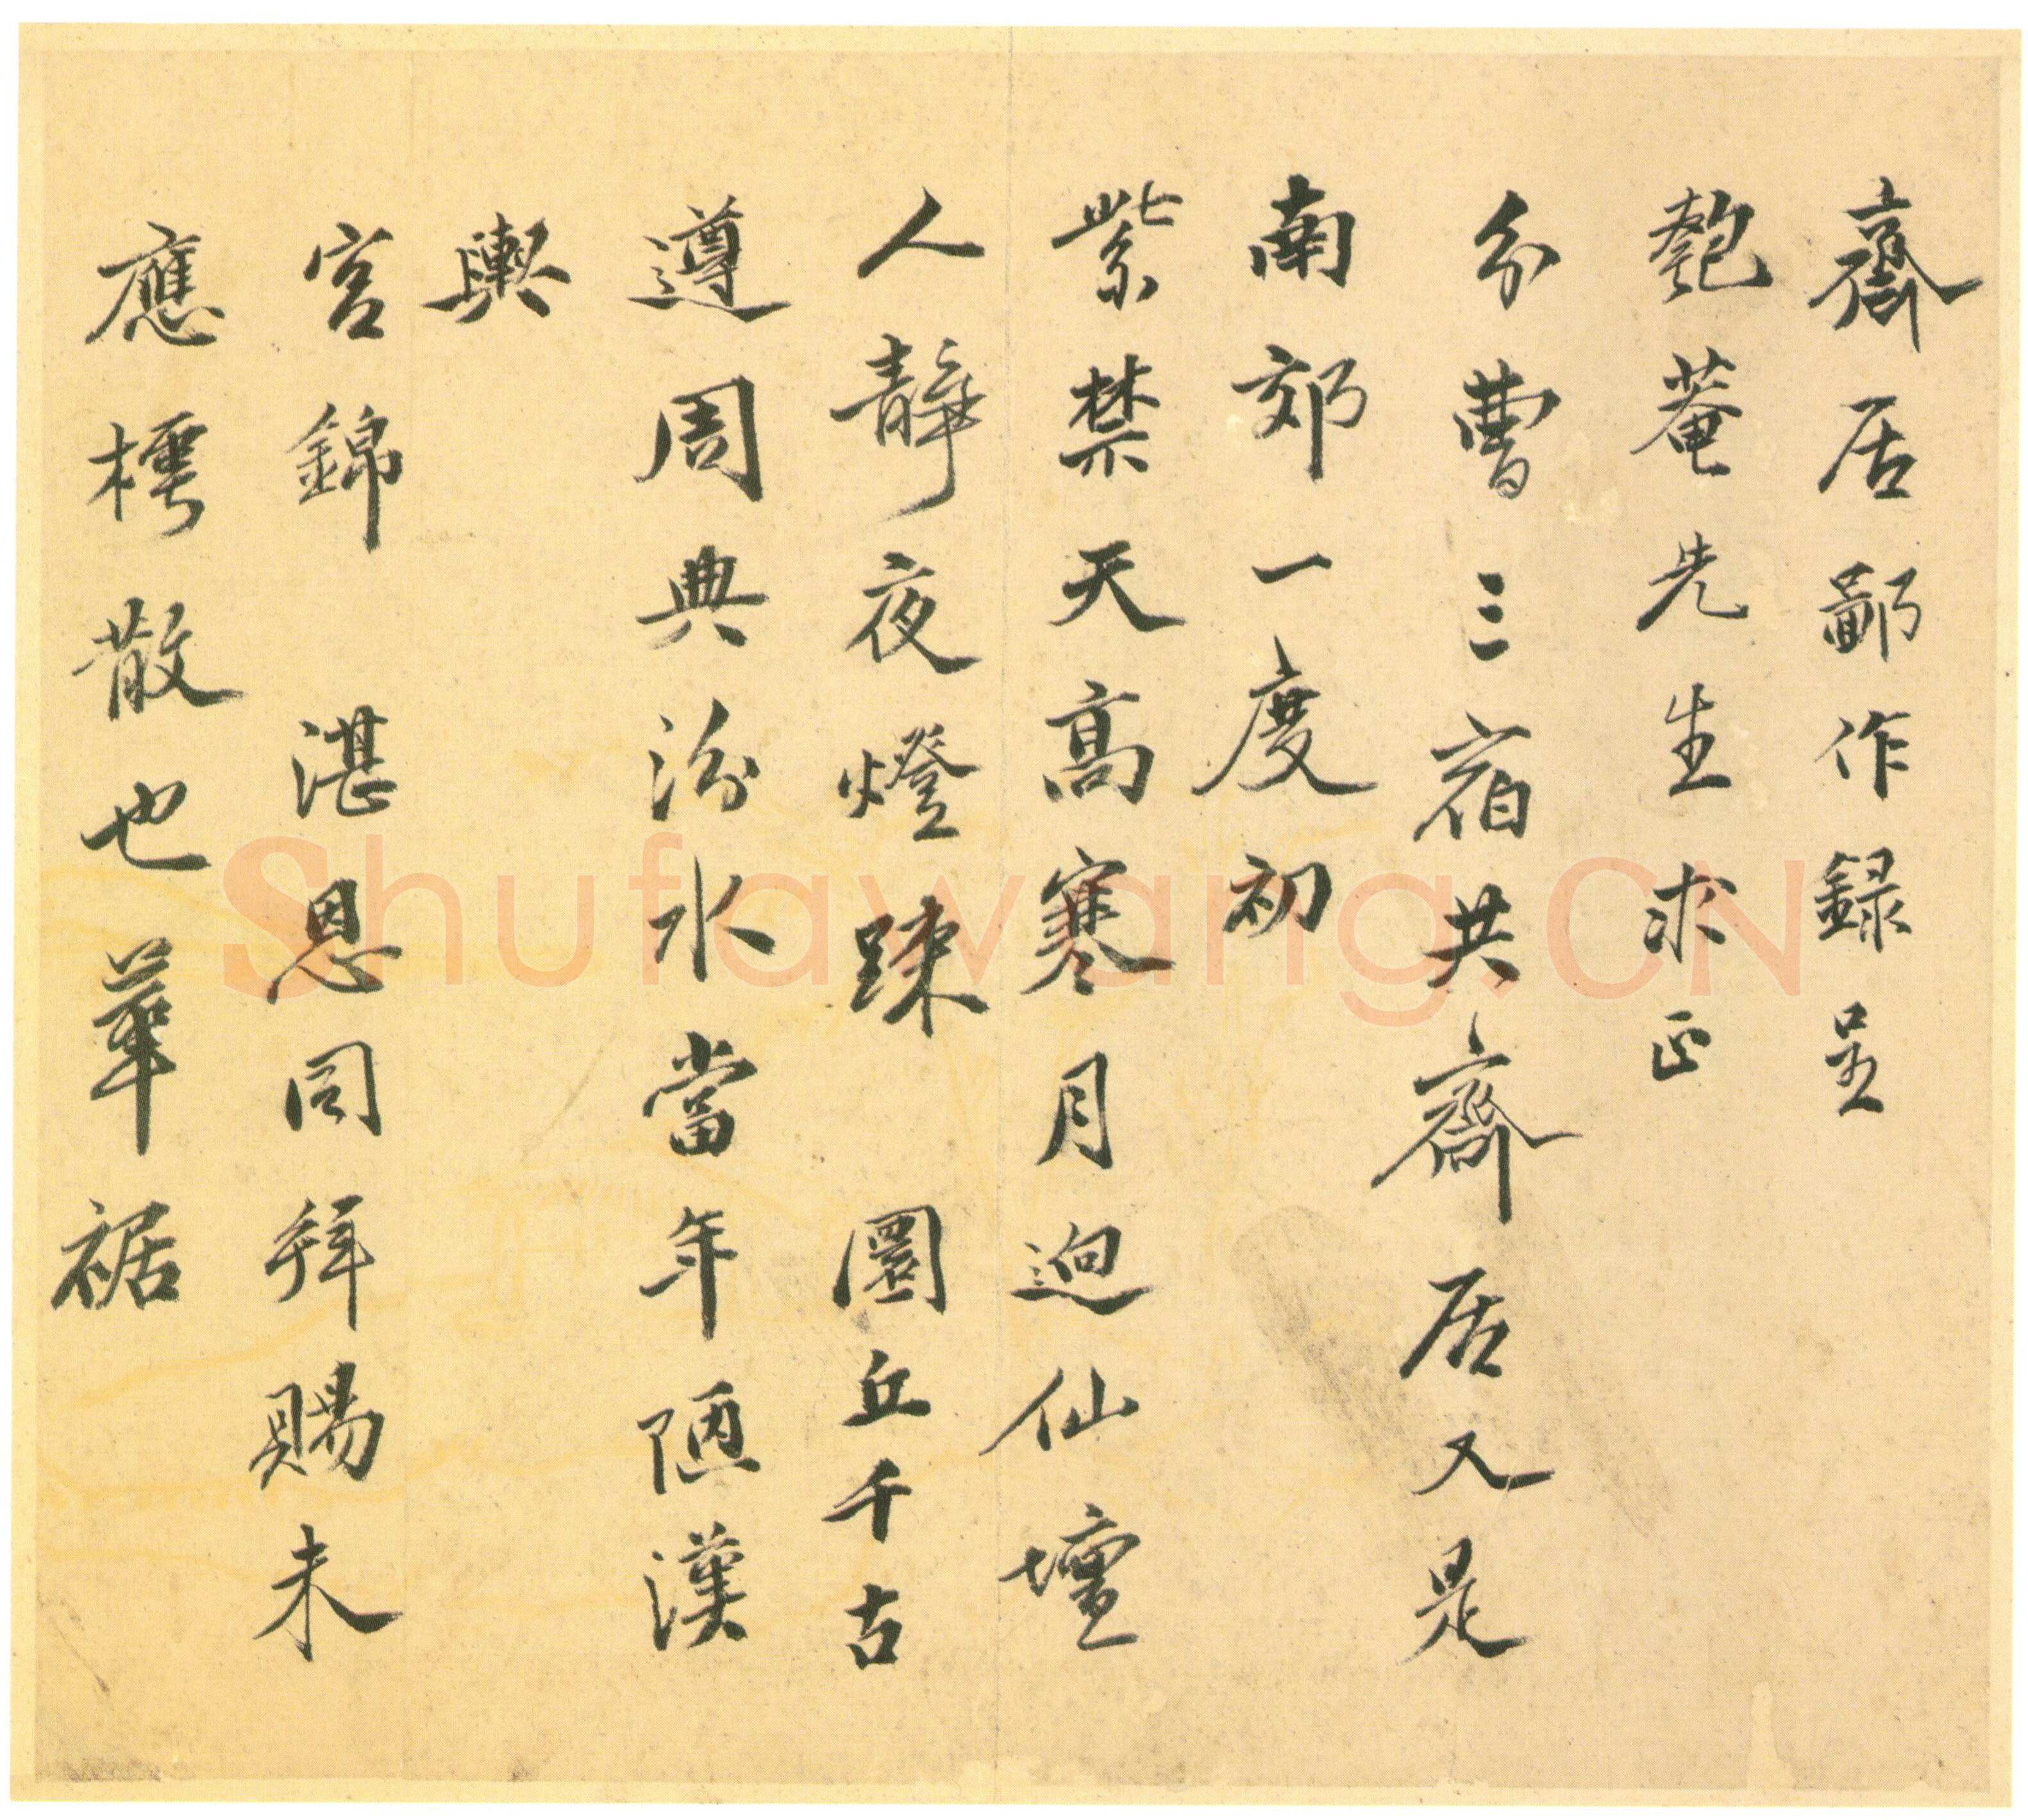 齋居鄙作録呈
匏菴先生求正
分曹三宿共齋居又是
南郊一度初
紫禁天高寒月迥仙壇
人靜夜燈踈圜丘千古
遵周典汾水當年陋漢
輿
宮錦湛恩同拜賜未
應樗散也華裾
Shufawang.CN